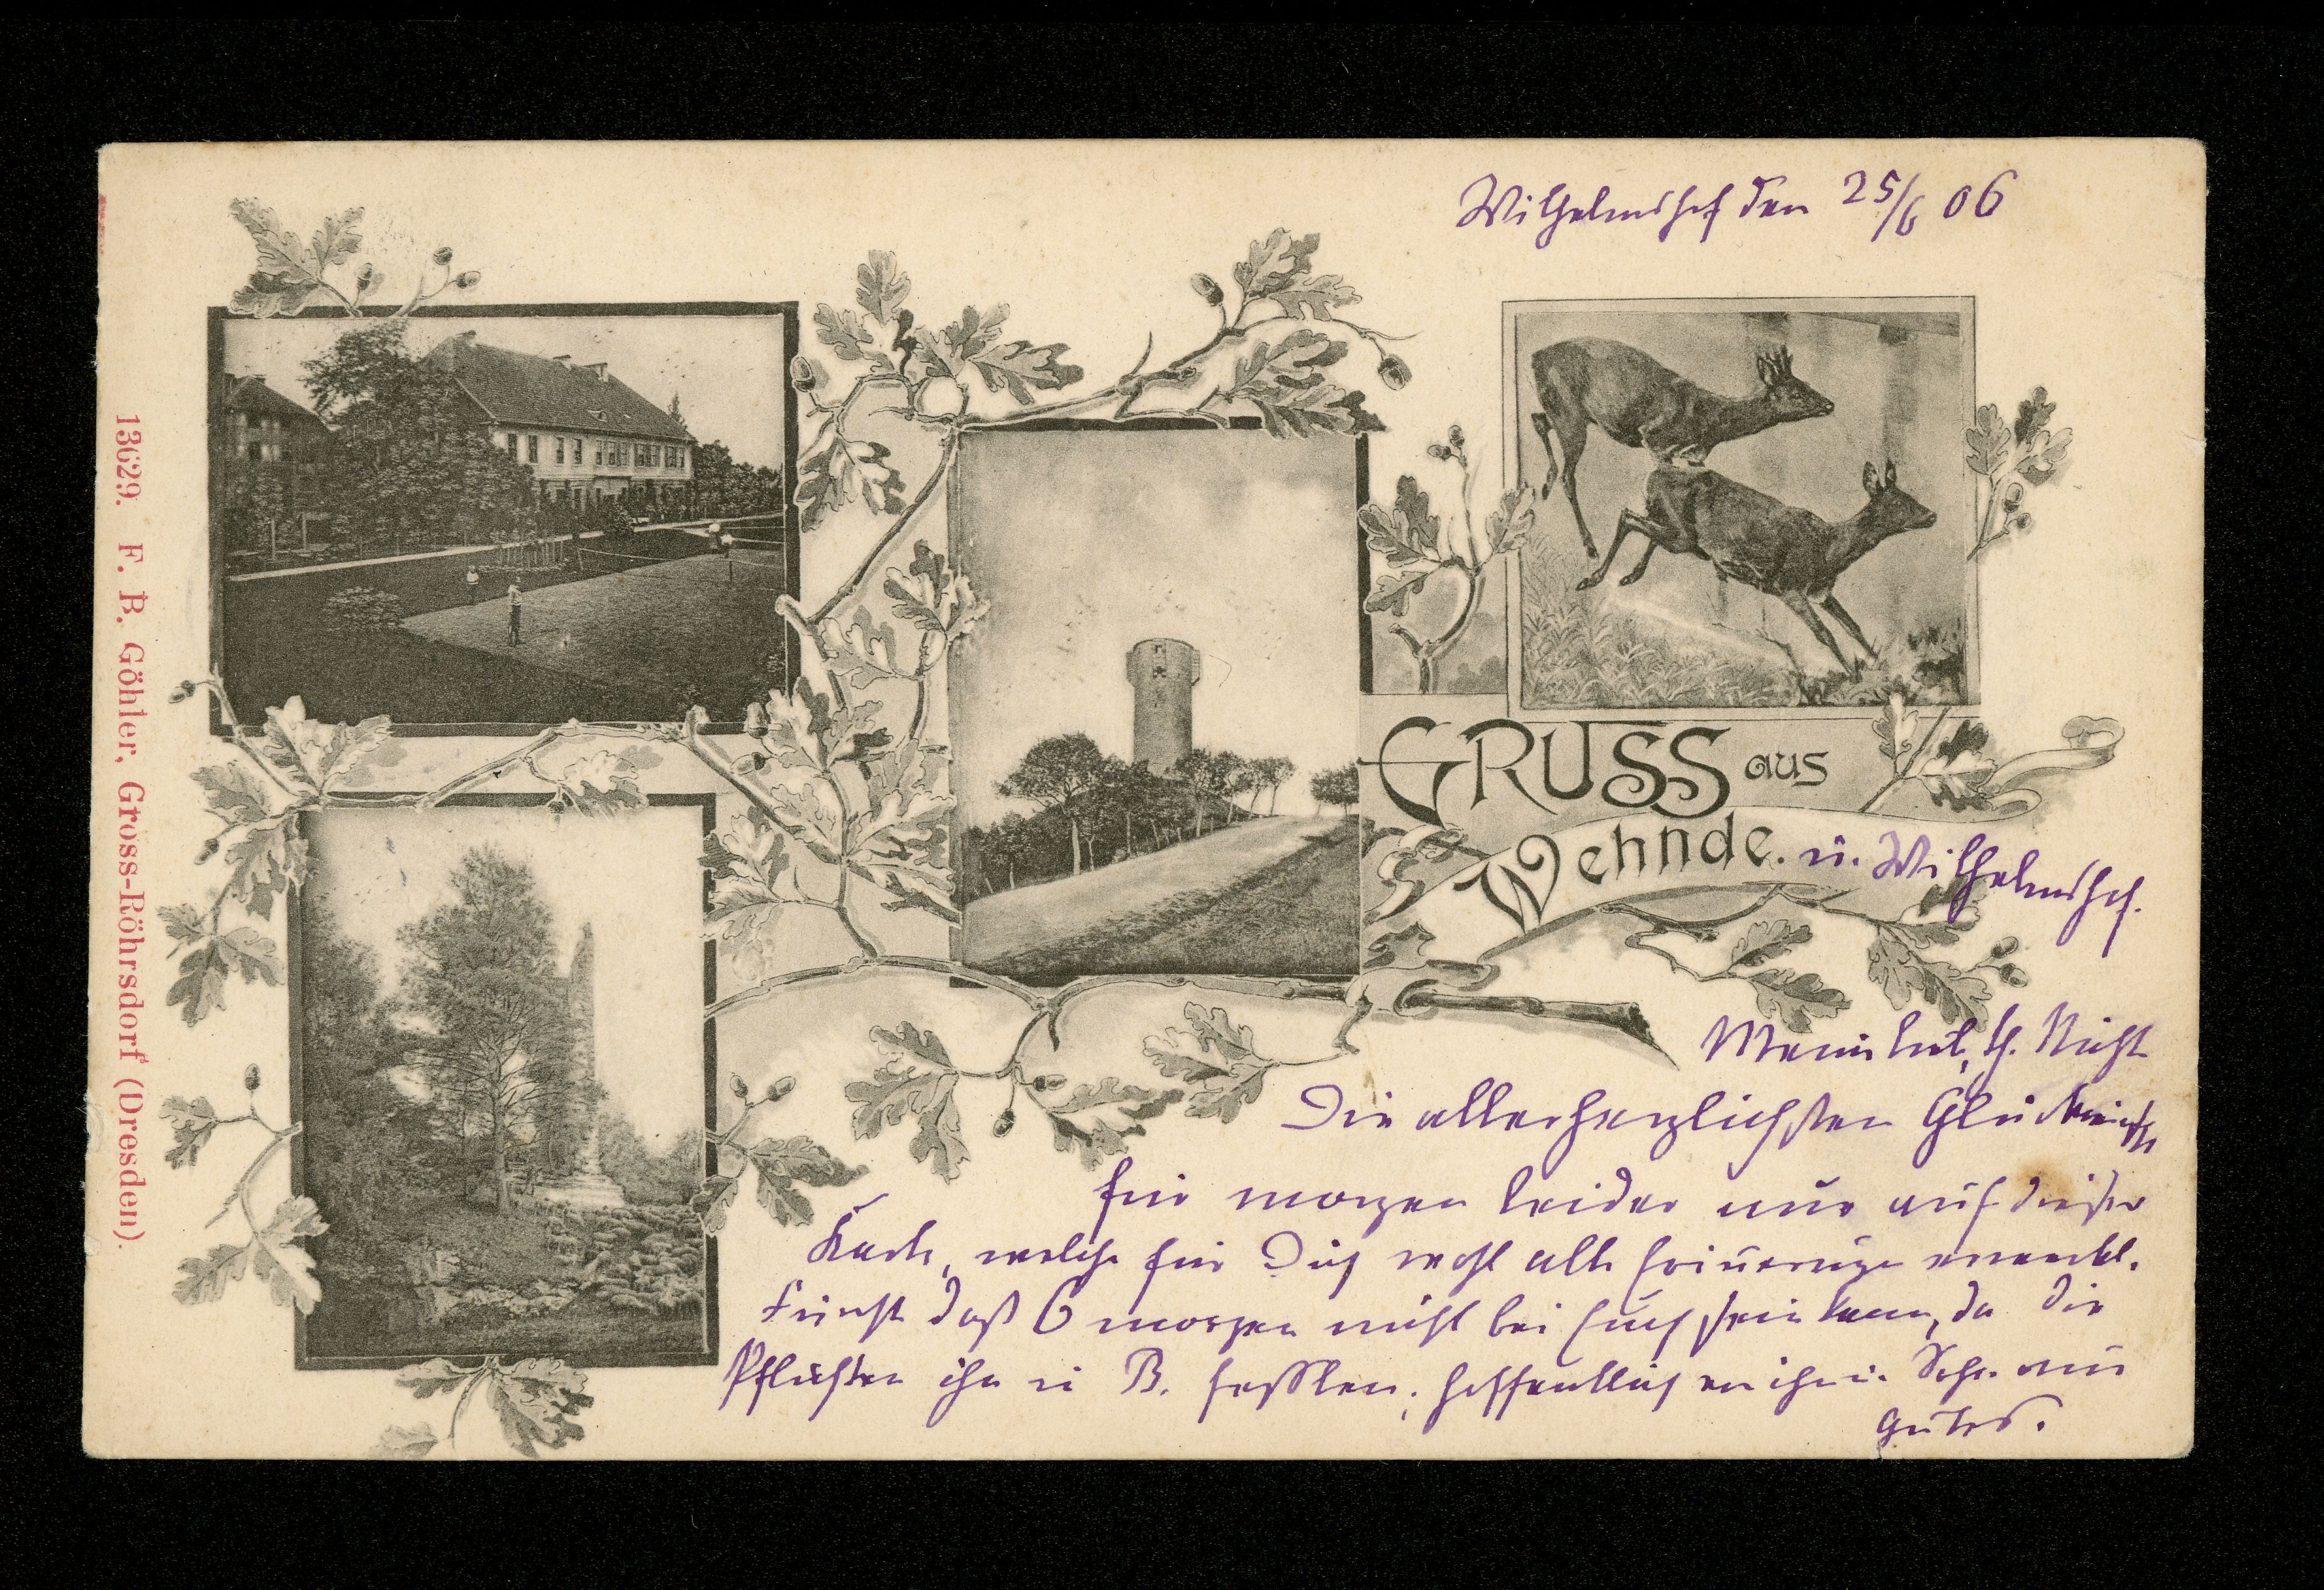 Wilhelmshof den 25/6 06
GRUSS aus
Wehnde. u. Wilhelmshof.
13629. F. B. Göhler, Gross-Röhrsdorf (Dresden).
Mein lieb. Nicht
Die allerherzlichsten Glückwünsche
für morgen leider nur auf dieser
Karte, welche für Dich wohl alte Erinnerungen erweckt.
daß O morgen nicht bei Euch sein kann, da die
Pflichten ihn in B. fesseln; hoffentlich
Gutes.